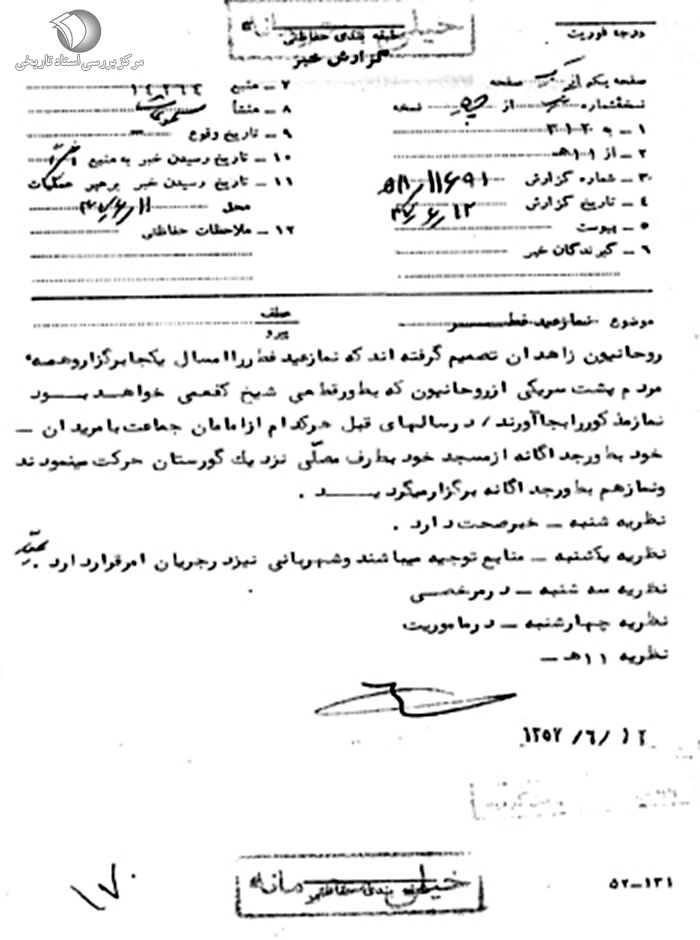 مرکز بررسی اسناد تاریخی
درجه فوریت
طبقه بندی حفاظتی
خیلی محرمانه
گزارش خبر
صفحه یک از صفحه
نسخه شماره از نسخه
۱ ــ به ۳۱۲
۲ ــ از ۱۱ هـ
۳ ــ شماره گزارش ۱۱۶۹۱/
۴ ــ تاریخ گزارش ۱۲/۶/
۵ ــ پیوست
۶ ــ گیرندگان خبر
۷ ــ منبع
۸ ــ منشأ
۹ ــ تاریخ وقوع ــ
۱۰ ــ تاریخ رسیدن خبر به منبع
۱۱ ــ تاریخ رسیدن خبر برهبر عملیات
محل ۱۱/۶/
۱۲ ــ ملاحظات حفاظتی
موضوع نماز عید فطر
عطف
پیرو
روحانیون زاهدان تصمیم گرفته اند که نماز عید فطر را امسال یکجا برگزار و همه
مردم پشت سر یکی از روحانیون که بطور قطعی شیخ کفعمی خواهد بود
نماز مذکور را بجا آورند / در سالهای قبل هر کدام از امامان جماعت با مریدان ــ
خود بطور جداگانه از مسجد خود بطرف مصلّی نزدیک گورستان حرکت مینمودند
و نماز هم بطور جداگانه برگزار میگردید .
نظریه شنبه ــ خبر صحت دارد .
نظریه یکشنبه ــ منابع توجیه میباشند و شهربانی نیز در جریان امر قرار دارد
نظریه سه شنبه ــ در مرخصی
نظریه چهارشنبه ــ در ماموریت
نظریه ۱۱ هـ ــ
۱۳۵۷/۶/۱۲
خیلی محرمانه
طبقه بندی حفاظتی
۱۷۰
۵۲ــ۱۳۱